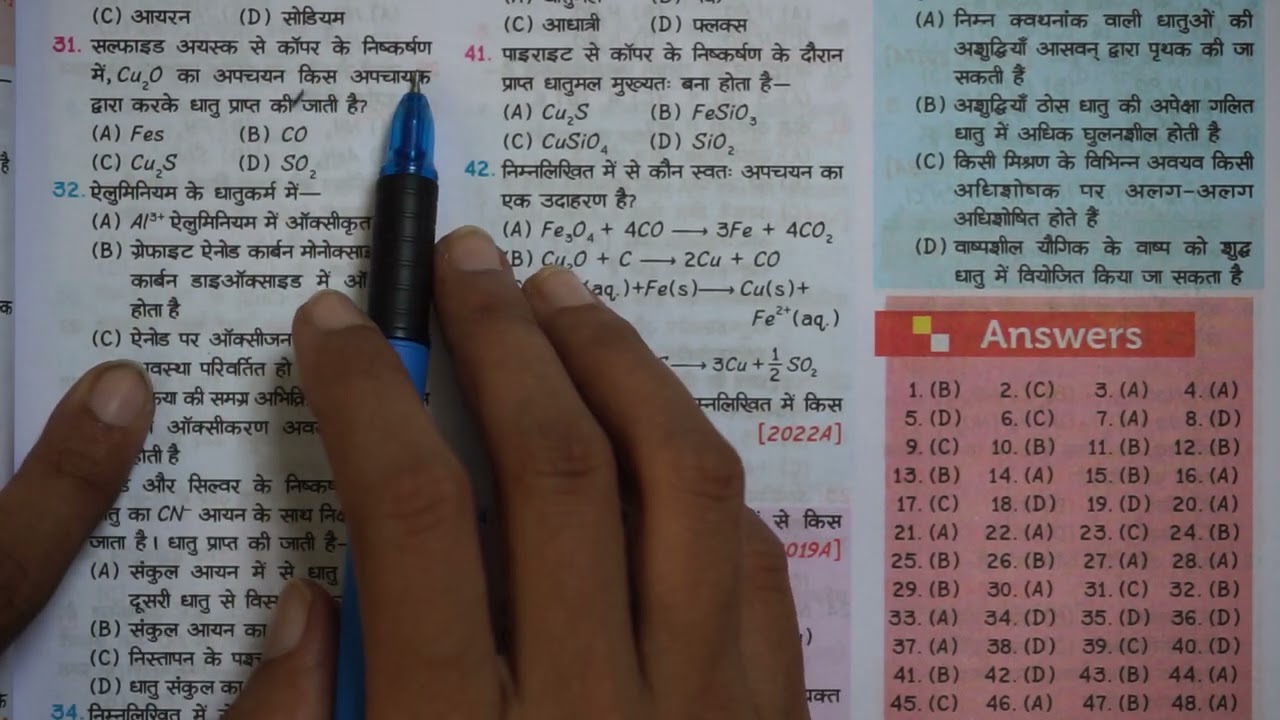 (C) आयरन (D) सोडियम
31. सल्फाइड अयस्क से कॉपर के निष्कर्षण
में, Cu₂O का अपचयन किस अपचायक
द्वारा करके धातु प्राप्त की जाती है?
(A) Fes (B) CO
(C) Cu₂S (D) SO₂
32. ऐलुमिनियम के धातुकर्म में—
(A) Al³⁺ ऐलुमिनियम में ऑक्सीकृत
(B) ग्रेफाइट ऐनोड कार्बन
कार्बन डाइऑक्साइड में
होता है
(C) ऐनोड पर ऑक्सीजन
परिवर्तित हो
की समग्र
ऑक्सीकरण
होती है
और सिल्वर के
का CN⁻ आयन के साथ
जाता है। धातु प्राप्त की जाती है–
(A) संकुल आयन में से धातु
दूसरी धातु से
(B) संकुल आयन का
(C) निस्तापन के
(D) धातु संकुल का
34. निम्नलिखित में
(C) आधात्री (D) फ्लक्स
41. पाइराइट से कॉपर के निष्कर्षण के दौरान
प्राप्त धातुमल मुख्यतः बना होता है—
(A) Cu₂S (B) FeSiO₃
(C) CuSiO₄ (D) SiO₂
42. निम्नलिखित में से कौन स्वतः अपचयन का
एक उदाहरण है?
(A) Fe₃O₄ + 4CO ⟶ 3Fe + 4CO₂
(B) Cu₂O + C ⟶ 2Cu + CO
(aq.)+Fe(s)⟶ Cu(s)+
Fe²⁺(aq.)
⟶ 3Cu + 1/2 SO₂
में किस
[2022A]
से किस
019A]
(A) निम्न क्वथनांक वाली धातुओं की
अशुद्धियाँ आसवन् द्वारा पृथक की जा
सकती हैं
(B) अशुद्धियाँ ठोस धातु की अपेक्षा गलित
धातु में अधिक घुलनशील होती है
(C) किसी मिश्रण के विभिन्न अवयव किसी
अधिशोषक पर अलग-अलग
अधिशोषित होते हैं
(D) वाष्पशील यौगिक के वाष्प को शुद्ध
धातु में वियोजित किया जा सकता है
Answers
1. (B) 2. (C) 3. (A) 4. (A)
5. (D) 6. (C) 7. (A) 8. (D)
9. (C) 10. (B) 11. (B) 12. (B)
13. (B) 14. (A) 15. (B) 16. (A)
17. (C) 18. (D) 19. (D) 20. (A)
21. (A) 22. (A) 23. (C) 24. (B)
25. (B) 26. (B) 27. (A) 28. (A)
29. (B) 30. (A) 31. (C) 32. (B)
33. (A) 34. (D) 35. (D) 36. (D)
37. (A) 38. (D) 39. (C) 40. (D)
41. (B) 42. (D) 43. (B) 44. (A)
45. (C) 46. (A) 47. (B) 48. (A)